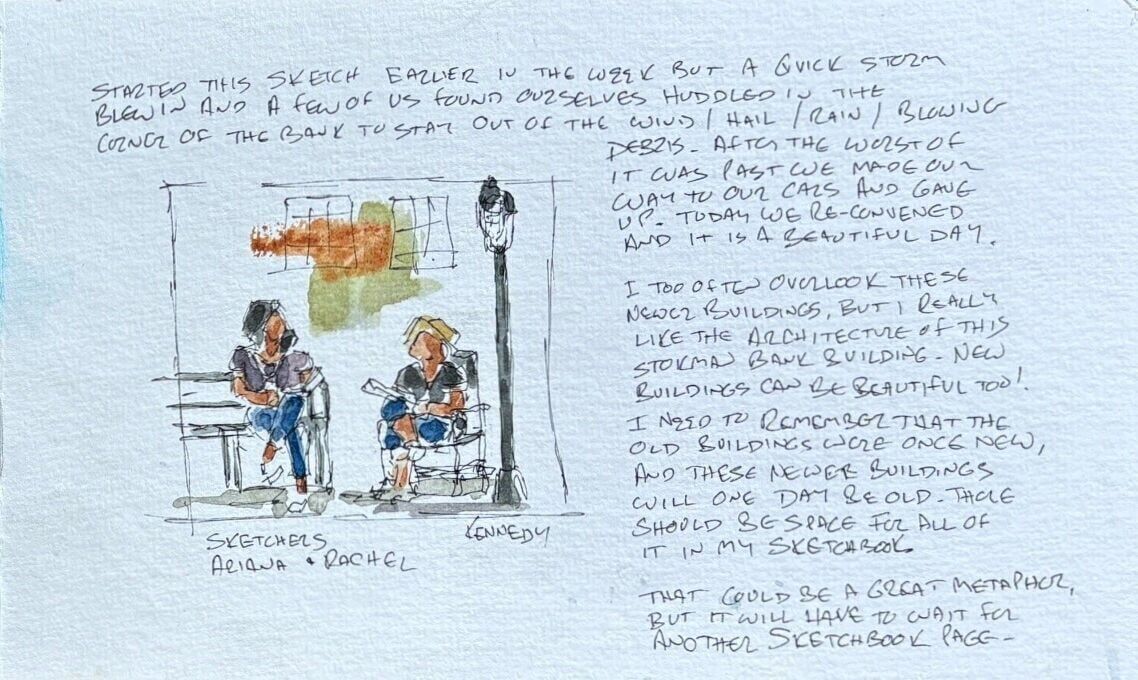 STARTED THIS SKETCH EARLIER IN THE WEEK BUT A QUICK STORM
BLEW IN AND A FEW OF US FOUND OURSELVES HUDDLED IN THE
CORNER OF THE BANK TO STAY OUT OF THE WIND / HAIL / RAIN / BLOWING
DEBRIS. AFTER THE WORST OF
IT WAS PAST WE MADE OUR
WAY TO OUR CARS AND GAVE
UP. TODAY WE RE-CONVENED
AND IT IS A BEAUTIFUL DAY.
I TOO OFTEN OVERLOOK THESE
NEWER BUILDINGS, BUT I REALLY
LIKE THE ARCHITECTURE OF THIS
STOCKMAN BANK BUILDING. NEW
BUILDINGS CAN BE BEAUTIFUL TOO!
I NEED TO REMEMBER THAT THE
OLD BUILDINGS WERE ONCE NEW,
AND THESE NEWER BUILDINGS
WILL ONE DAY BE OLD. THERE
SHOULD BE SPACE FOR ALL OF
IT IN MY SKETCHBOOK.
THAT COULD BE A GREAT METAPHOR,
BUT IT WILL HAVE TO WAIT FOR
ANOTHER SKETCHBOOK PAGE-
SKETCHERS
ARIANA + RACHEL
KENNEDY